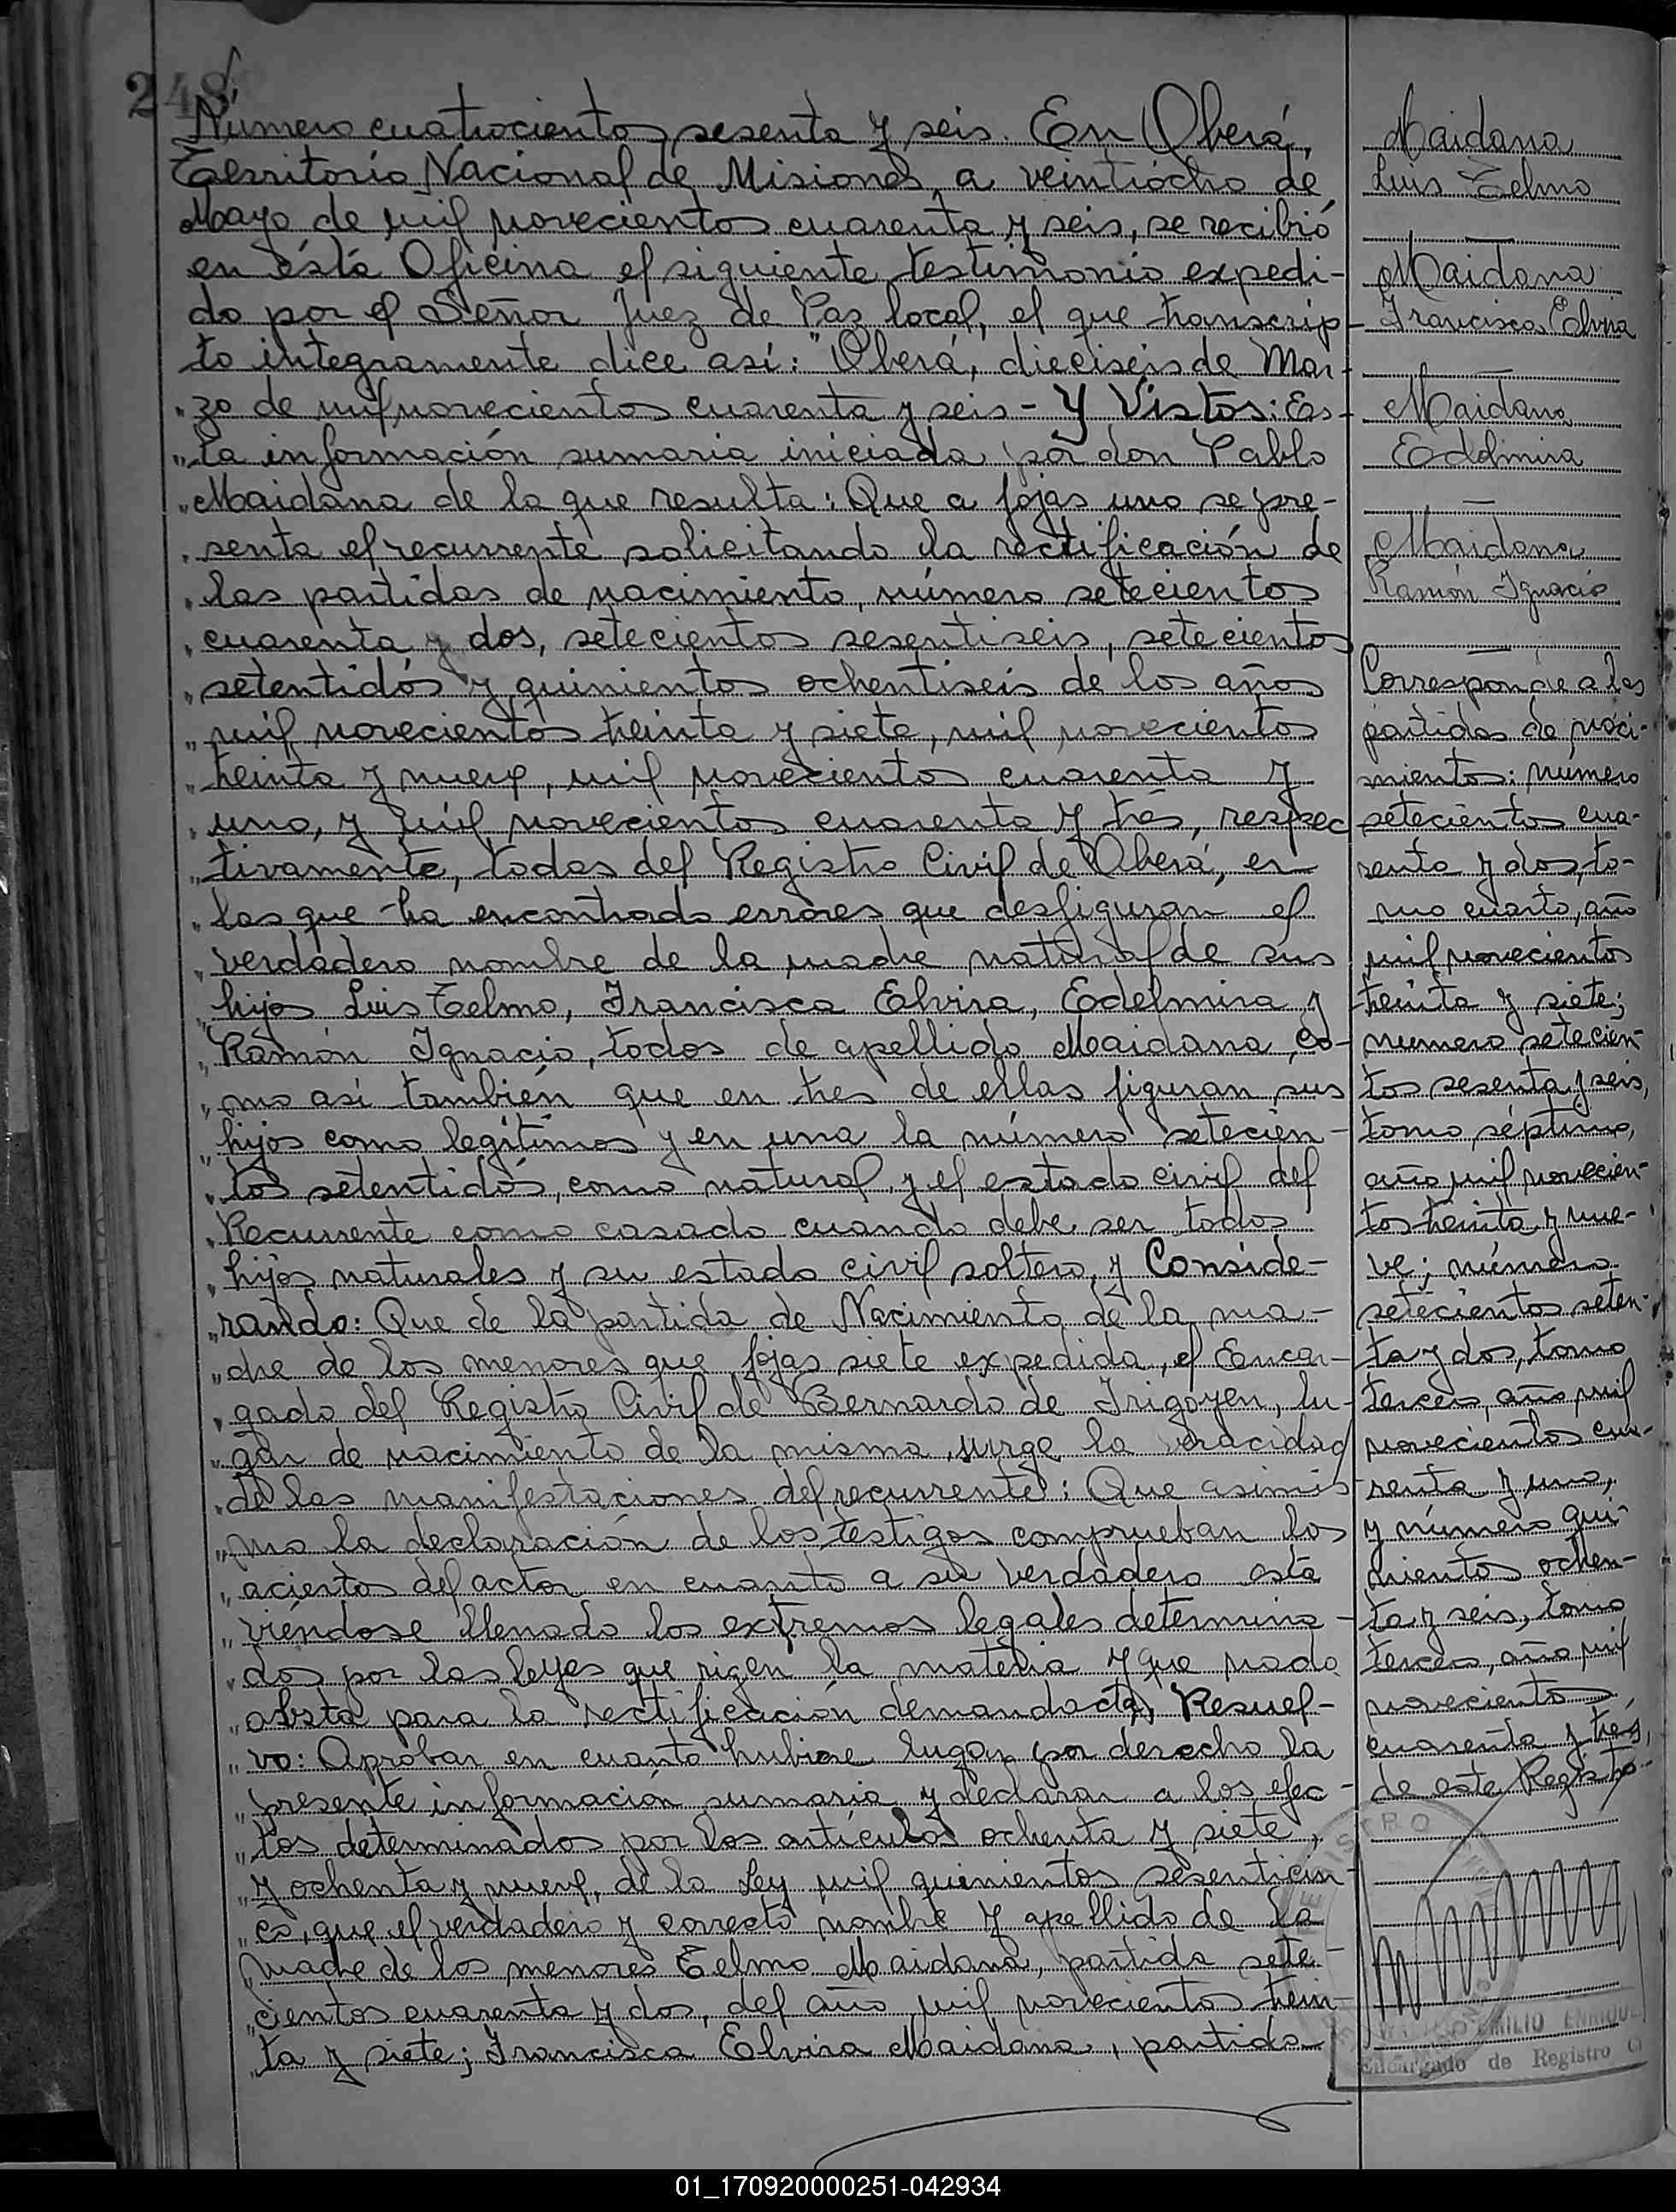 248
Número cuatrocientos sesenta y seis. En Oberá,
Territorio Nacional de Misiones, a veintiocho de
Mayo de mil novecientos cuarenta y seis, se recibió
en ésta Oficina el siguiente testimonio expedi-
do por el Señor Juez de Paz local, el que transcrip-
to integramente dice así: "Oberá, dieciséis de Mar-
"zo de mil novecientos cuarenta y seis - Y Vistos: Es-
"ta información sumaria iniciada por don Pablo
"Maidana de la que resulta: Que a fojas uno se pre-
"senta el recurrente solicitando la rectificación de
"las partidas de nacimiento, número setecientos
"cuarenta y dos, setecientos sesentiseis, setecientos
"setentidós y quinientos ochentiseis de los años
"mil novecientos treinta y siete, mil novecientos
"treinta y nueve, mil novecientos cuarenta y
"uno, y mil novecientos cuarenta y trés, respec
"tivamente, todas del Registro Civil de Oberá, en
"las que ha encontrado errores que desfiguran el
"verdadero nombre de la madre natural de sus
"hijos Luis Telmo, Francisca Elvira, Edelmira y
"Ramón Ignacio, todos de apellido Maidana, co-
"mo así también que en tres de ellas figuran sus
"hijos como legítimos y en una la número setecien-
"tos setentidós, como natural, y el estado civil del
"Recurrente como casado cuando debe ser todos
"hijos naturales y su estado civil soltero, y Conside-
"rando: Que de la partida de Nacimiento de la ma-
"dre de los menores que fojas siete expedida, el Encar-
"gado del Registro Civil de Bernardo de Irigoyen, lu-
"gar de nacimiento de la misma, surge la veracidad
"de las manifestaciones del recurrente: Que asimis
"mo la declaración de los testigos comprueban los
"aciertos del actor en cuanto a su verdadero esta
"viéndose llenado los extremos legales determina-
"dos por las leyes que rigen la materia y que nada
"obsta para la rectificación demandada, Resuel-
"vo: Aprobar en cuanto hubiere lugar por derecho la
"presente información sumaria y declarar a los efec-
"tos determinados por los artículos ochenta y siete,
"y ochenta y nueve, de la Ley mil quinientos sesenticin-
"co, que el verdadero y correcto nombre y apellido de la
"madre de los menores Telmo Maidana, partida sete-
"cientos cuarenta y dos, del año mil novecientos trein-
"ta y siete; Francisca Elvira Maidana, partida
Maidana
Luis Telmo
Maidana
Francisca Elvira
Maidana
Edelmira
Maidana
Ramón Ignacio
Corresponde a las
partidas de naci-
miento: número
setecientos cua-
renta y dos, to-
mo cuarto, año
mil novecientos
treinta y siete;
número setecien-
tos sesenta y seis,
tomo séptimo,
año mil novecien-
tos treinta y nue-
ve; número
setecientos seten-
ta y dos, tomo
tercero, año mil
novecientos cua-
renta y uno,
y número qui-
nientos ochen-
ta y seis, tomo
tercero, año mil
novecientos
cuarenta y trés,
de este Registro.-
EMILIO ENRIQUE
Encargado de Registro C
01_170920000251-042934